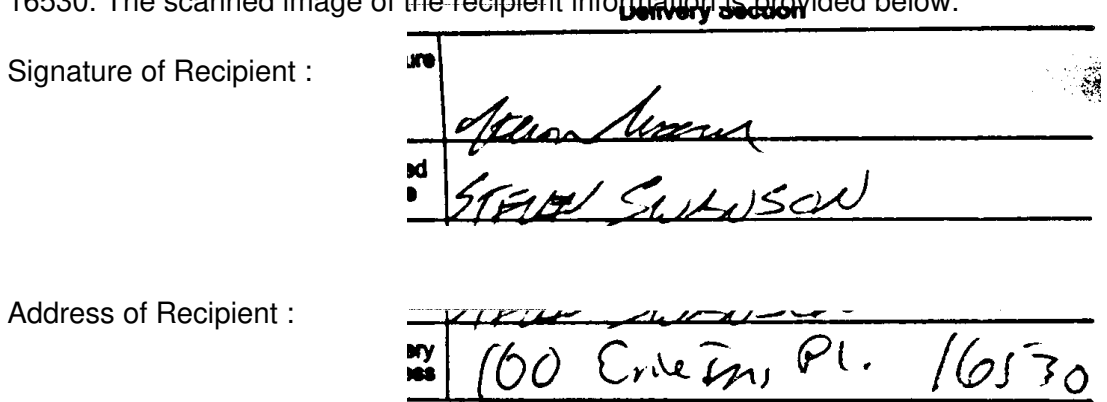 16530. The scanned image of the recipient information is provided below.
Delivery Section
Signature of Recipient :
ure
ed
e
STEVEN SWANSON
Address of Recipient :
ery
ess
100 Erie Ins, Pl. 16530